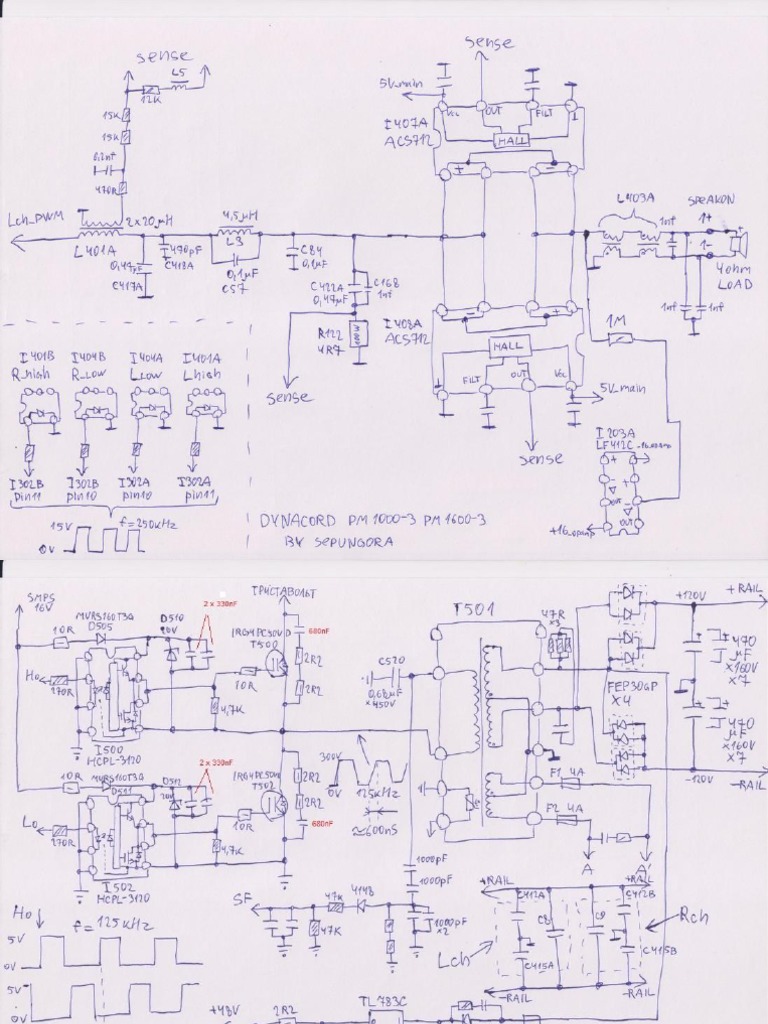 sense
sense
L5
12K
15K
15K
0,2nf
470R
5V_main
Vcc
OUT
FILT
I407A
ACS712
HALL
Lch_PWM
2x20µH
L401A
4,5µH
L3
0,47µF
C417A
470pF
C418A
0,1µF
C57
C84
0,1µF
C422A
0,47µF
C168
1nf
R122
4R7
sense
L403A
1nf
SPEAKON
1+
1-
4ohm
LOAD
1nf
1nf
1M
I408A
ACS712
HALL
FILT
OUT
Vcc
5V_main
sense
I203A
LF412C
OUT
OUT
+16_opamp
I401B
R_high
I404B
R_low
I404A
L_low
I401A
L_high
I302B
pin11
I302B
pin10
I302A
pin10
I302A
pin11
15V
0V
f=250kHz
DYNACORD PM1000-3 PM1600-3
BY SEPUNGORA
SMPS
16V
10R
MURS160T3G
D505
D510
20V
2 x 330nF
Ho
270R
I500
HCPL-3120
4,7K
10R
IRG4PC50UD
T500
680nF
2R2
2R2
10R
MURS160T3G
D511
D512
2 x 330nF
Lo
270R
I502
HCPL-3120
4,7K
10R
T502
2R2
2R2
680nF
300V
0V
125kHz
≈600nS
C520
0,68µF
x450V
T501
47R
x3
FEP30GP
x4
+120V
+RAIL
470
µF
x160V
x7
470
µF
x160V
x7
-120V
-RAIL
F1 4A
F2 4A
A
A'
1000pF
1000pF
1000pF
x2
SF
47K
4148
47K
Ho
f=125kHz
5V
0V
5V
0V
+RAIL
+RAIL
C412A
C8
C9
C412B
C415A
C415B
Lch
Rch
-RAIL
-RAIL
+48V
2R2
TL783C